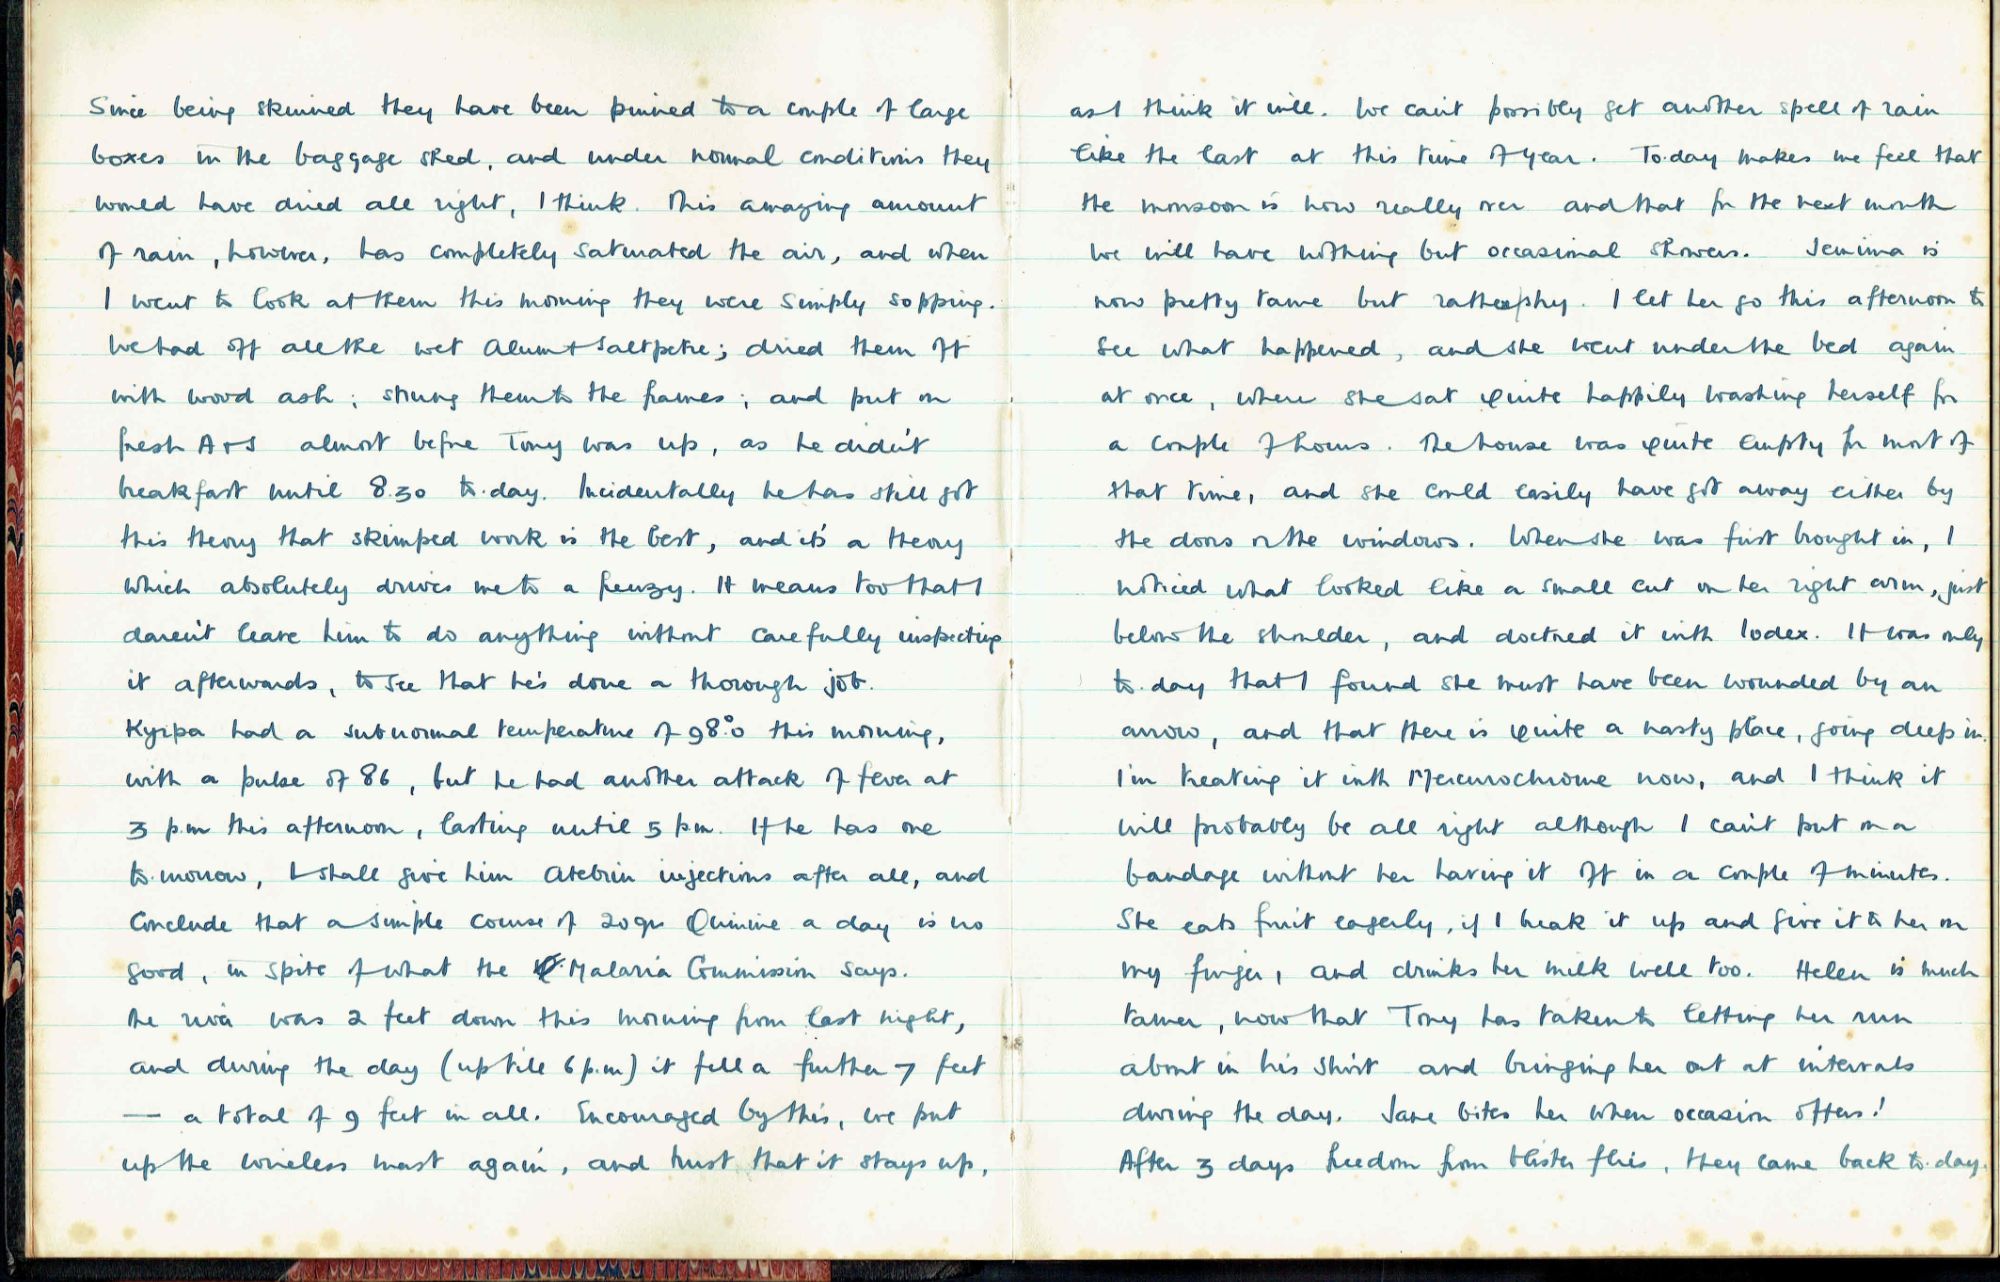 Since being skinned they have been pinned to a couple of large
boxes in the baggage shed, and under normal conditions they
would have dried all right, I think. This amazing amount
of rain, however, has completely saturated the air, and when
I went to look at them this morning they were simply sopping.
We had off all the wet Alum + Saltpetre; dried them off
with wood ash; strung them to the frames; and put on
fresh A + S almost before Tony was up, as he didn't
breakfast until 8.30 to-day. Incidentally he has still got
this theory that skimped work is the best, and it's a theory
which absolutely drives me to a frenzy. It means too that I
daren't leave him to do anything without carefully inspecting
it afterwards, to see that he's done a thorough job.
Kyipa had a subnormal temperature of 98.0° this morning,
with a pulse of 86, but he had another attack of fever at
3 p.m this afternoon, lasting until 5 p.m. If he has one
to-morrow, I shall give him Atebrin injections after all, and
conclude that a simple course of 20 grs Quinine a day is no
good, in spite of what the Malaria Commission says.
The river was 2 feet down this morning from last night,
and during the day (up till 6 p.m) it fell a further 7 feet
— a total of 9 feet in all. Encouraged by this, we put
up the wireless mast again, and trust that it stays up,
as I think it will. We can't possibly get another spell of rain
like the last at this time of year. To-day makes me feel that
the monsoon is now really over and that for the next month
we will have nothing but occasional showers. Jemima is
now pretty tame but rather shy. I let her go this afternoon to
see what happened, and she went under the bed again
at once, where she sat quite happily washing herself for
a couple of hours. The house was quite empty for most of
that time, and she could easily have got away either by
the doors or the windows. When she was first brought in, I
noticed what looked like a small cut on her right arm, just
below the shoulder, and doctored it with Iodex. It was only
to-day that I found she must have been wounded by an
arrow, and that there is quite a nasty place, going deep in.
I'm treating it with Mercurochrome now, and I think it
will probably be all right although I can't put on a
bandage without her having it off in a couple of minutes.
She eats fruit eagerly, if I break it up and give it to her on
my finger, and drinks her milk well too. Helen is much
tamer, now that Tony has taken to letting her run
about in his shirt and bringing her out at intervals
during the day. Jane bites her when occasion offers!
After 3 days freedom from blister flies, they came back to-day.